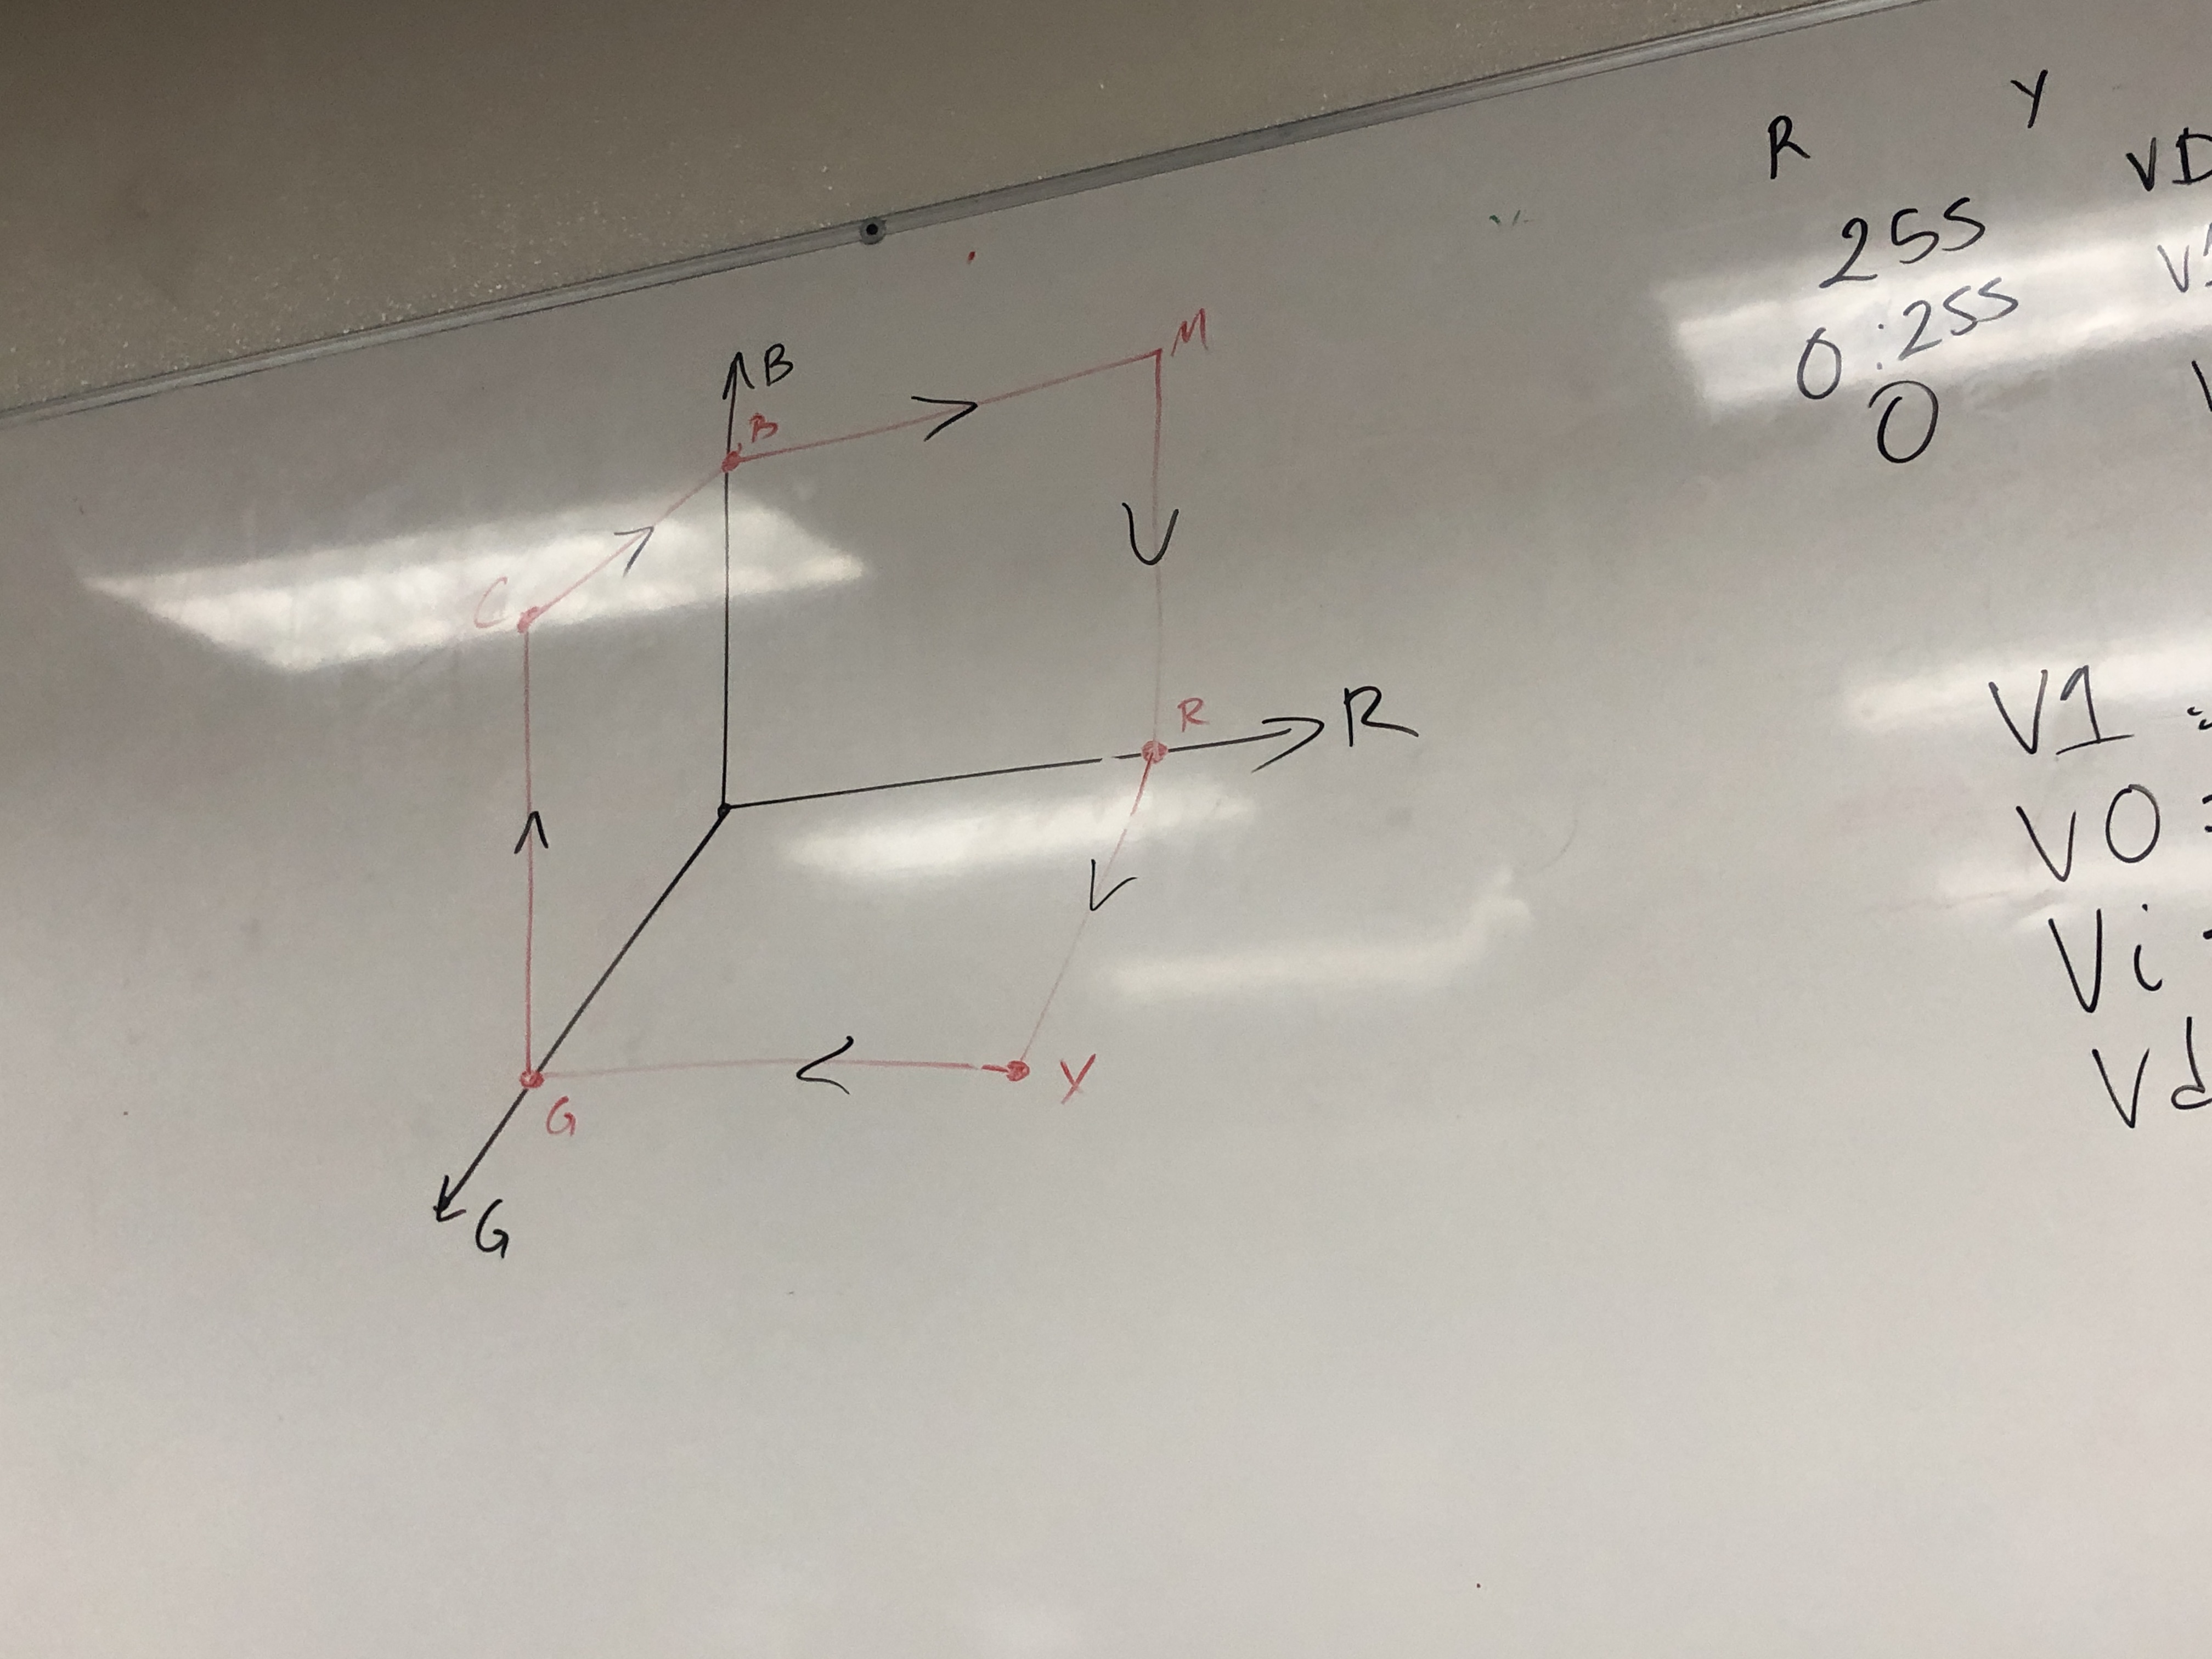 B
B
M
C
R
R
Y
G
G
R Y
255 VD
0:255
0
V1
V0
Vi
Vd